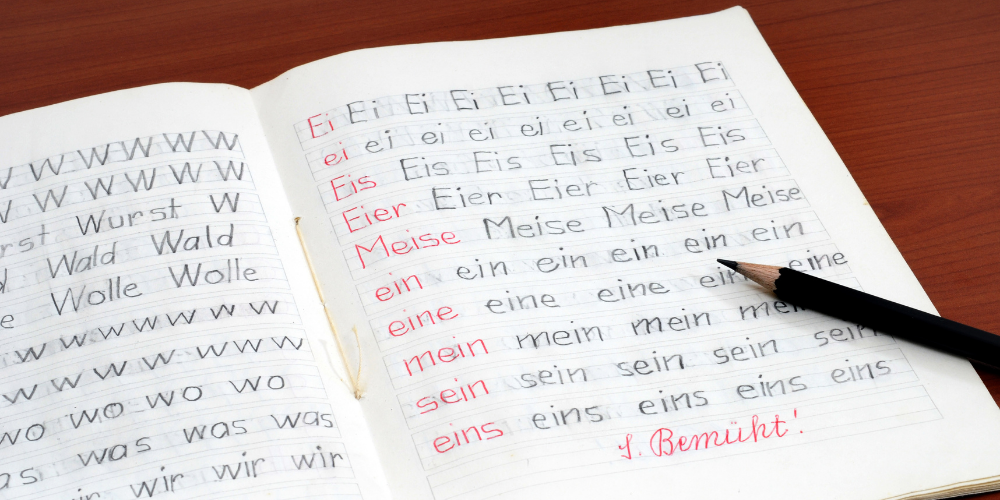 W W W W W
W W W W W
rst Wurst W
d Wald Wald
e Wolle Wolle
w w w w w w w
w w w w w w w
wo wo wo wo
as was was was
ir wir wir wir
Ei Ei Ei Ei Ei Ei Ei Ei Ei
ei ei ei ei ei ei ei ei ei
Eis Eis Eis Eis Eis Eis
Eier Eier Eier Eier Eier
Meise Meise Meise Meise
ein ein ein ein ein ein
eine eine eine ein eine
mein mein mein mein
sein sein sein sein sein
eins eins eins eins eins
S. Bemüht!